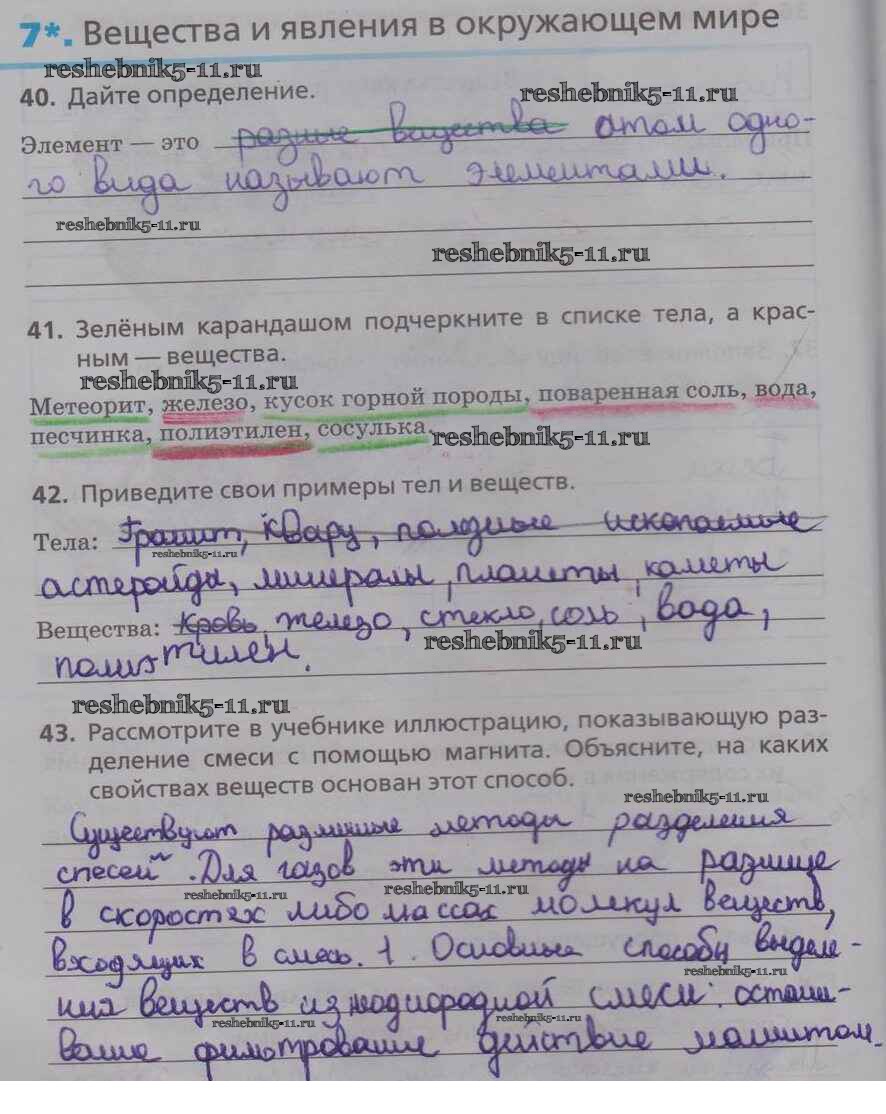 7*. Вещества и явления в окружающем мире
reshebnik5-11.ru
40. Дайте определение.
reshebnik5-11.ru
Элемент — это разные вещества атом одно-
го вида называют элементами.
reshebnik5-11.ru
reshebnik5-11.ru
41. Зелёным карандашом подчеркните в списке тела, а крас-
ным — вещества.
reshebnik5-11.ru
Метеорит, железо, кусок горной породы, поваренная соль, вода,
песчинка, полиэтилен, сосулька.
reshebnik5-11.ru
42. Приведите свои примеры тел и веществ.
Тела: Гранит, кварц, полезные ископаемые
reshebnik5-11.ru
астеройды, минералы, планеты, каметы
Вещества: кровь железо, стекло, соль, вода,
reshebnik5-11.ru
полиэтилен.
reshebnik5-11.ru
43. Рассмотрите в учебнике иллюстрацию, показывающую раз-
деление смеси с помощью магнита. Объясните, на каких
свойствах веществ основан этот способ.
reshebnik5-11.ru
Существуют различные методы разделения
спесей. Для газов эти методы на разнице
reshebnik5-11.ru
reshebnik5-11.ru
в скоростях либо массах молекул веществ,
входящих в смесь. 1. Основные способы выделе-
reshebnik5-11.ru
ния веществ из неоднородной смеси: отстаи-
reshebnik5-11.ru
reshebnik5-11.ru
вание фильтрование действие магнитом.